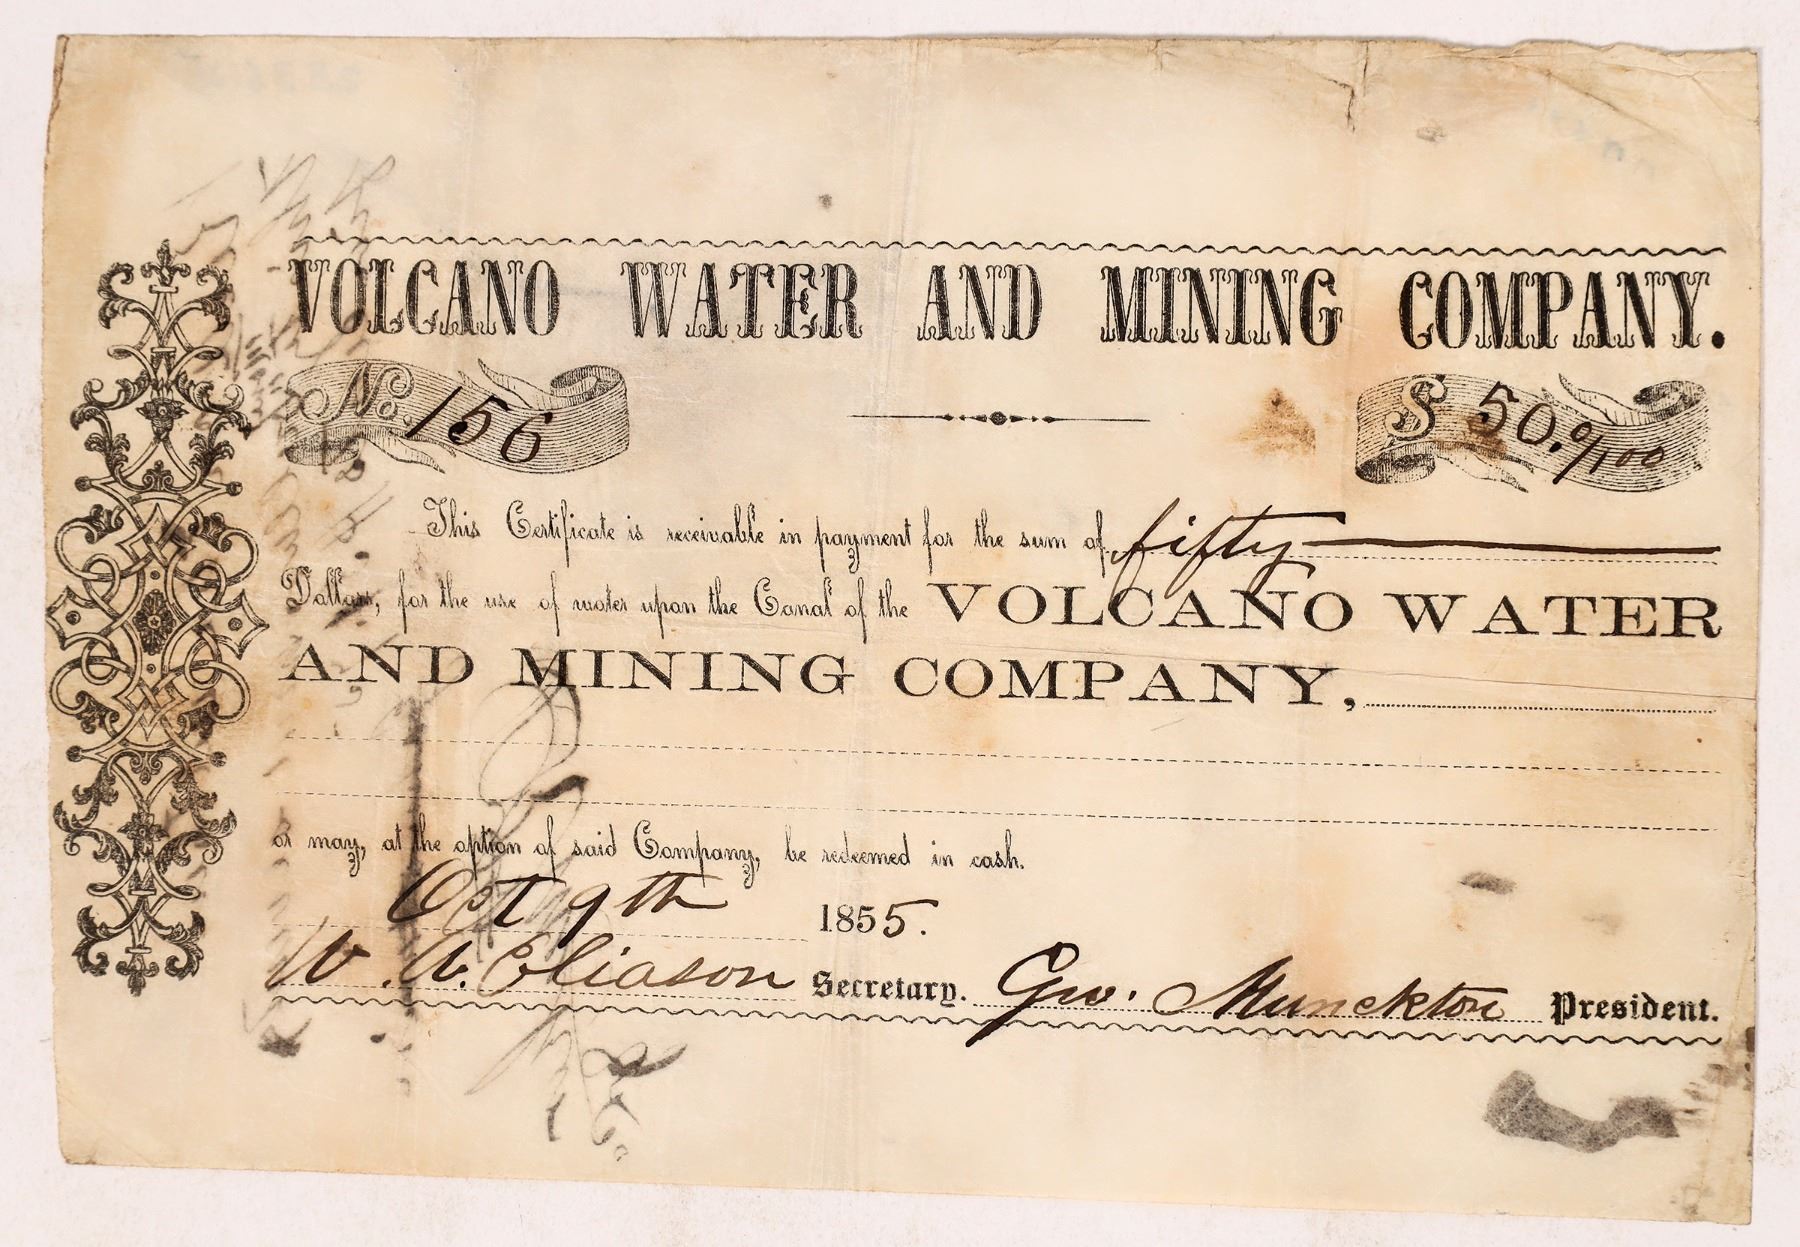 VOLCANO WATER AND MINING COMPANY.
No. 156
$ 50.0/100
This Certificate is receivable in payment for the sum of fifty
Dollars, for the use of water upon the Canal of the VOLCANO WATER
AND MINING COMPANY,
or may, at the option of said Company, be redeemed in cash.
Oct 9th 1855.
W. A. Eliason Secretary. Geo. Munckton President.